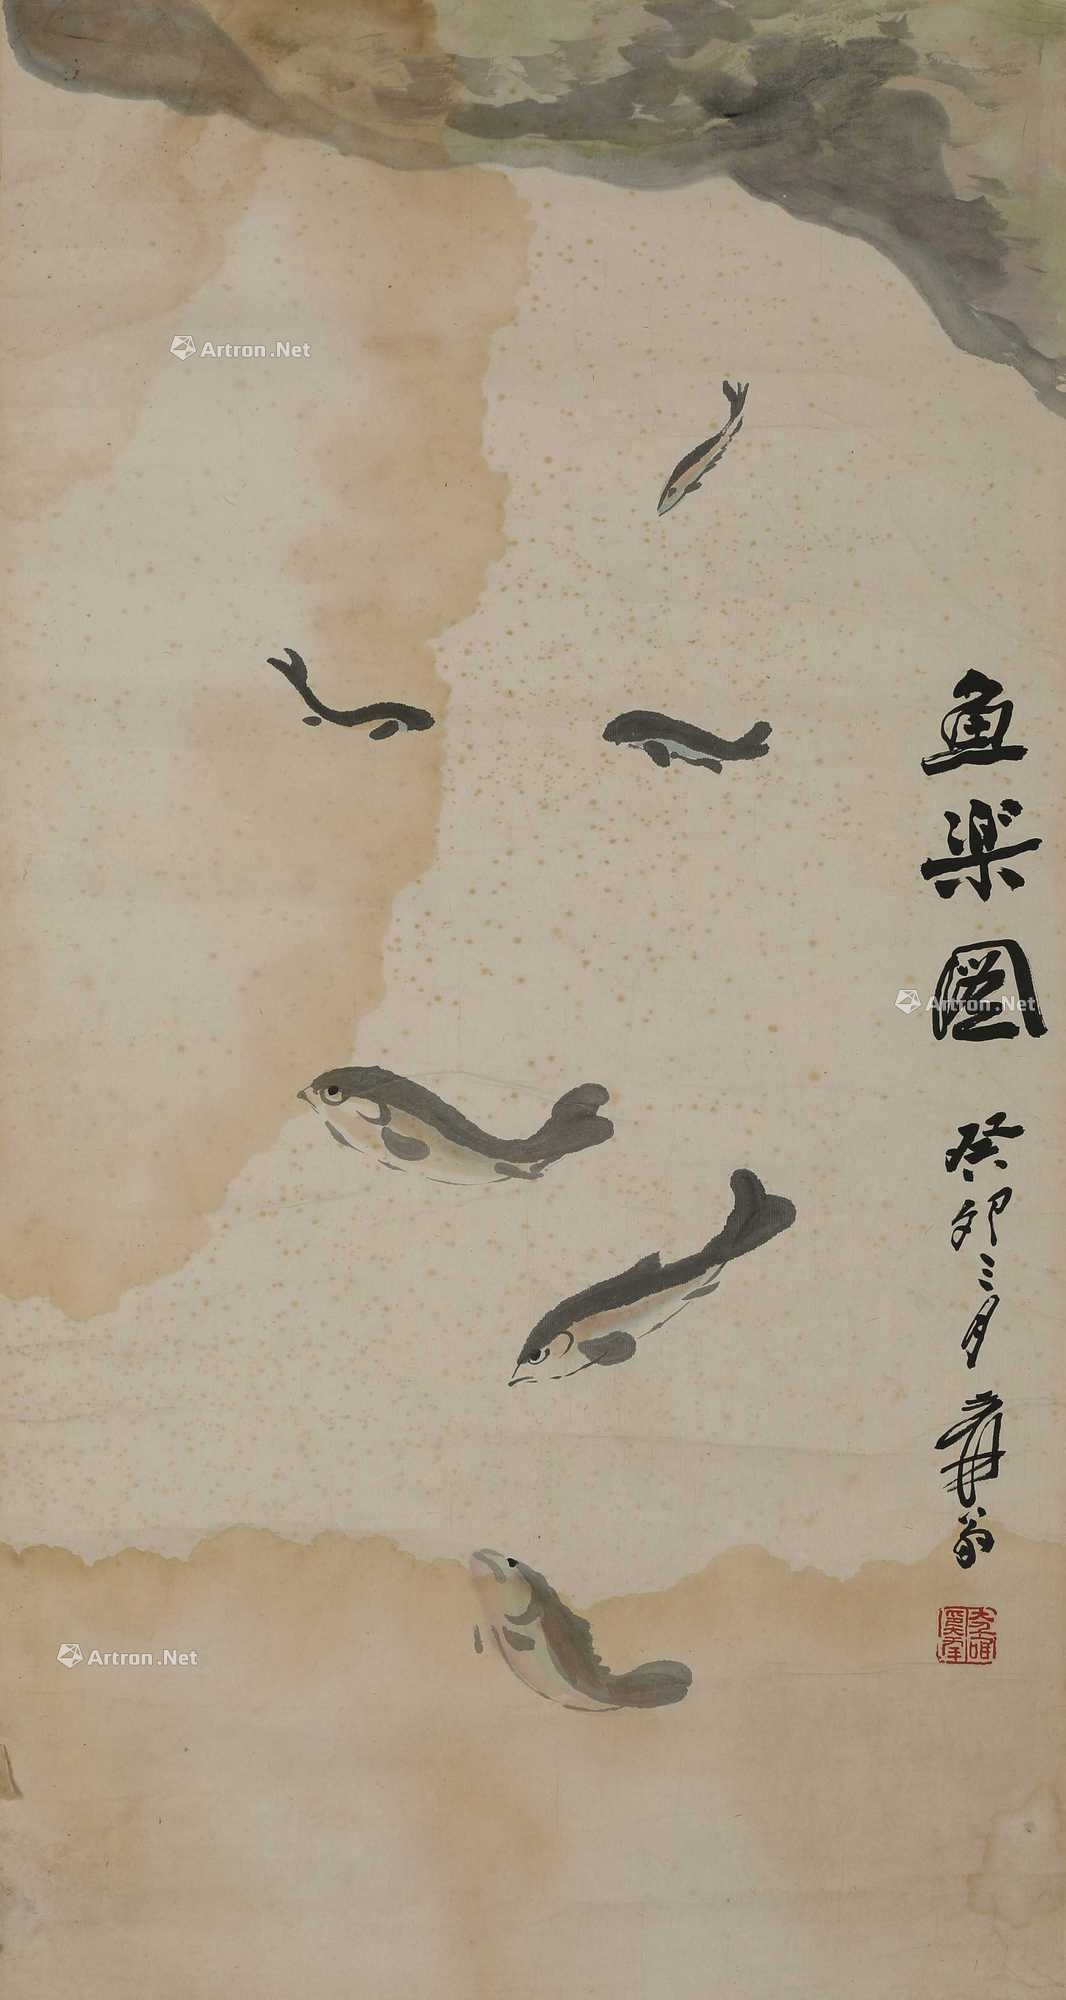 Artron.Net
魚樂圖
Artron.Net
癸卯三月
爰翁
Artron.Net